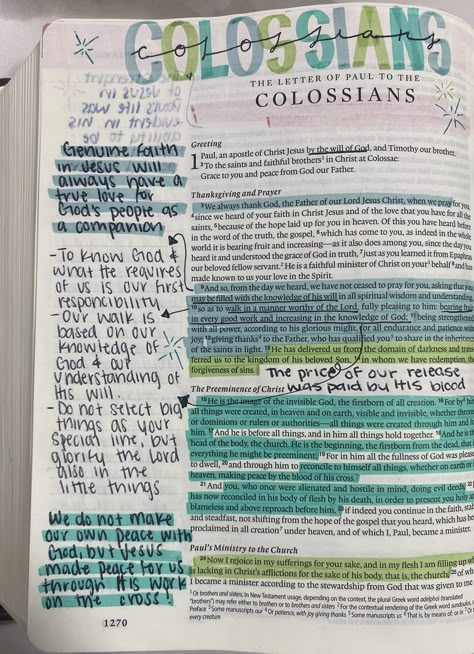 COLOSSIANS
colossians
THE LETTER OF PAUL TO THE
COLOSSIANS
Genuine faith
in Jesus will
always have a
true love for
God's people as
a companion
-To know God &
what He requires
of us is our first
responcibility
-Our walk is
based on our
knowledge of
God & our
understanding of
His will.
-Do not select big
things as your
special line, but
glorify the Lord
also in the
little things
We do not make
our own peace with
God, but Jesus
made peace for us
through His work
on the cross!
1270
Greeting
1 Paul, an apostle of Christ Jesus by the will of God, and Timothy our brother,
2 To the saints and faithful brothers1 in Christ at Colossae:
Grace to you and peace from God our Father.
Thanksgiving and Prayer
3 We always thank God, the Father of our Lord Jesus Christ, when we pray for you,
4 since we heard of your faith in Christ Jesus and of the love that you have for all the
saints, 5 because of the hope laid up for you in heaven. Of this you have heard before
in the word of the truth, the gospel, 6 which has come to you, as indeed in the whole
world it is bearing fruit and increasing—as it also does among you, since the day you
heard it and understood the grace of God in truth, 7 just as you learned it from Epaphras
our beloved fellow servant.2 He is a faithful minister of Christ on your3 behalf 8 and has
made known to us your love in the Spirit.
9 And so, from the day we heard, we have not ceased to pray for you, asking that you
may be filled with the knowledge of his will in all spiritual wisdom and understanding,
10 so as to walk in a manner worthy of the Lord, fully pleasing to him: bearing fruit
in every good work and increasing in the knowledge of God; 11 being strengthened
with all power, according to his glorious might, for all endurance and patience with
joy; 12 giving thanks4 to the Father, who has qualified you5 to share in the inheritance
of the saints in light. 13 He has delivered us from the domain of darkness and trans-
ferred us to the kingdom of his beloved Son, 14 in whom we have redemption, the
forgiveness of sins.
The price of our release
was paid by His blood
The Preeminence of Christ
15 He is the image of the invisible God, the firstborn of all creation. 16 For by6 him
all things were created, in heaven and on earth, visible and invisible, whether thrones
or dominions or rulers or authorities—all things were created through him and for
him. 17 And he is before all things, and in him all things hold together. 18 And he is the
head of the body, the church. He is the beginning, the firstborn from the dead, that
everything he might be preeminent. 19 For in him all the fullness of God was pleased
to dwell, 20 and through him to reconcile to himself all things, whether on earth or
heaven, making peace by the blood of his cross.
21 And you, who once were alienated and hostile in mind, doing evil deeds, 22
has now reconciled in his body of flesh by his death, in order to present you holy
blameless and above reproach before him, 23 if indeed you continue in the faith, stable
and steadfast, not shifting from the hope of the gospel that you heard, which has been
proclaimed in all creation7 under heaven, and of which I, Paul, became a minister.
Paul's Ministry to the Church
24 Now I rejoice in my sufferings for your sake, and in my flesh I am filling up what
is lacking in Christ's afflictions for the sake of his body, that is, the church, 25 of which
I became a minister according to the stewardship from God that was given to me
1 Or brothers and sisters. In New Testament usage, depending on the context, the plural Greek word adelphoi (translated
"brothers") may refer either to brothers or to brothers and sisters 2 For the contextual rendering of the Greek word sundoulos,
Preface 3 Some manuscripts our 4 Or patience, with joy giving thanks 5 Some manuscripts us 6 That is, by means of; or in 7
every creature